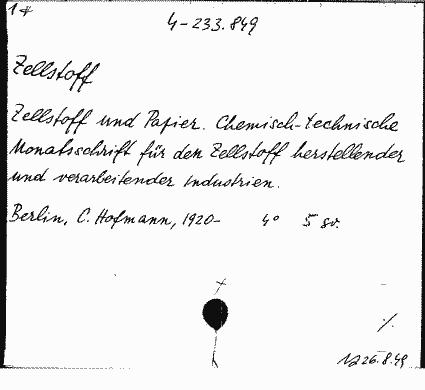 1*
4-233.849
Zellstoff
Zellstoff und Papier. Chemisch-technische
Monatsschrift für den Zellstoff herstellender
und verarbeitender Industrien.
Berlin, C. Hofmann, 1920- 4° 5 sv.
+
·/.
26.8.49